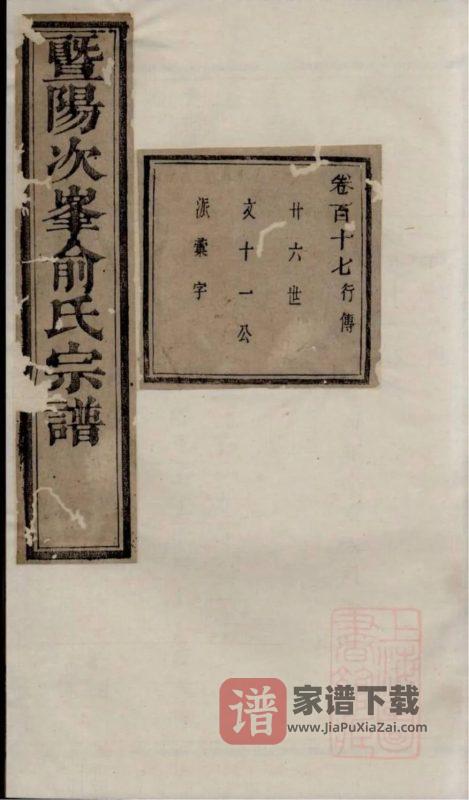 暨陽次峯俞氏宗譜
卷百十七行傳
廿六世
文十一公
派彙字
上海圖
書館藏
谱 家谱下载
www.JiaPuXiaZai.com